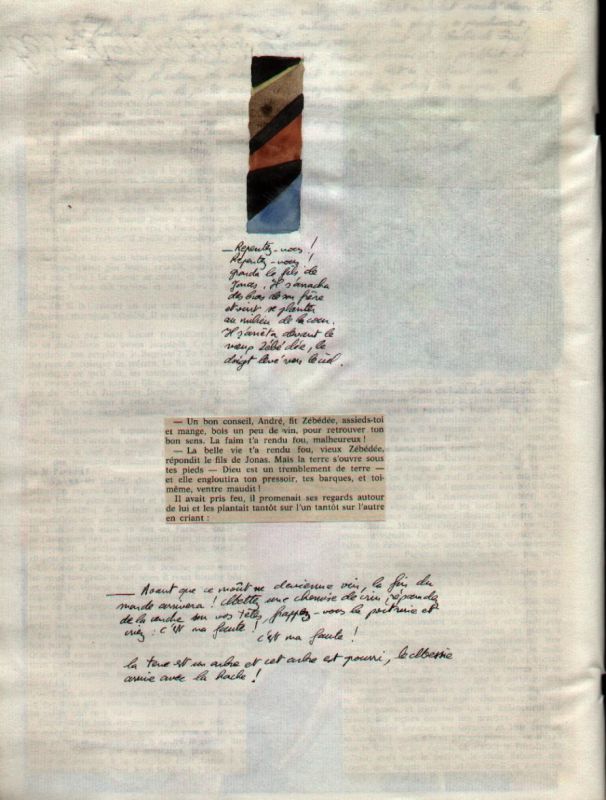 — Repentez-vous !
Repentez-vous !
gronda le fils de
Jonas. Il s'arracha
des bras de son frère
et vint se planter
au milieu de la cour.
Il s'arrêta devant le
vieux Zébédée, le
doigt levé vers le ciel.
— Un bon conseil, André, fit Zébédée, assieds-toi
et mange, bois un peu de vin, pour retrouver ton
bon sens. La faim t'a rendu fou, malheureux !
— La belle vie t'a rendu fou, vieux Zébédée,
répondit le fils de Jonas. Mais la terre s'ouvre sous
tes pieds — Dieu est un tremblement de terre —
et elle engloutira ton pressoir, tes barques, et toi-
même, ventre maudit !
Il avait pris feu, il promenait ses regards autour
de lui et les plantait tantôt sur l'un tantôt sur l'autre
en criant :
— Avant que ce moût ne devienne vin, la fin du
monde arrivera ! Mettez une chemise de crin, répandez
de la cendre sur vos têtes, frappez-vous la poitrine et
criez : c'est ma faute !
c'est ma faute !
la terre est un arbre et cet arbre est pourri, le Messie
arrive avec la hache !